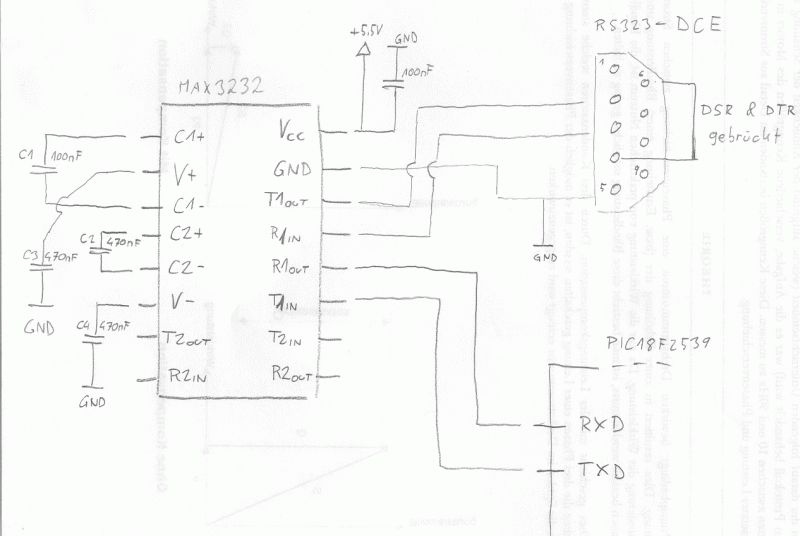 RS323-DCE
+5,5V
GND
100nF
MAX3232
1
6
5
9
DSR & DTR
gebrückt
C1 100nF
C1+
V+
C1-
C2+
C2-
V-
T2OUT
R2IN
VCC
GND
T1OUT
R1IN
R1OUT
T1IN
T2IN
R2OUT
C2 470nF
C3 470nF
GND
C4 470nF
GND
GND
PIC18F2539
RXD
TXD